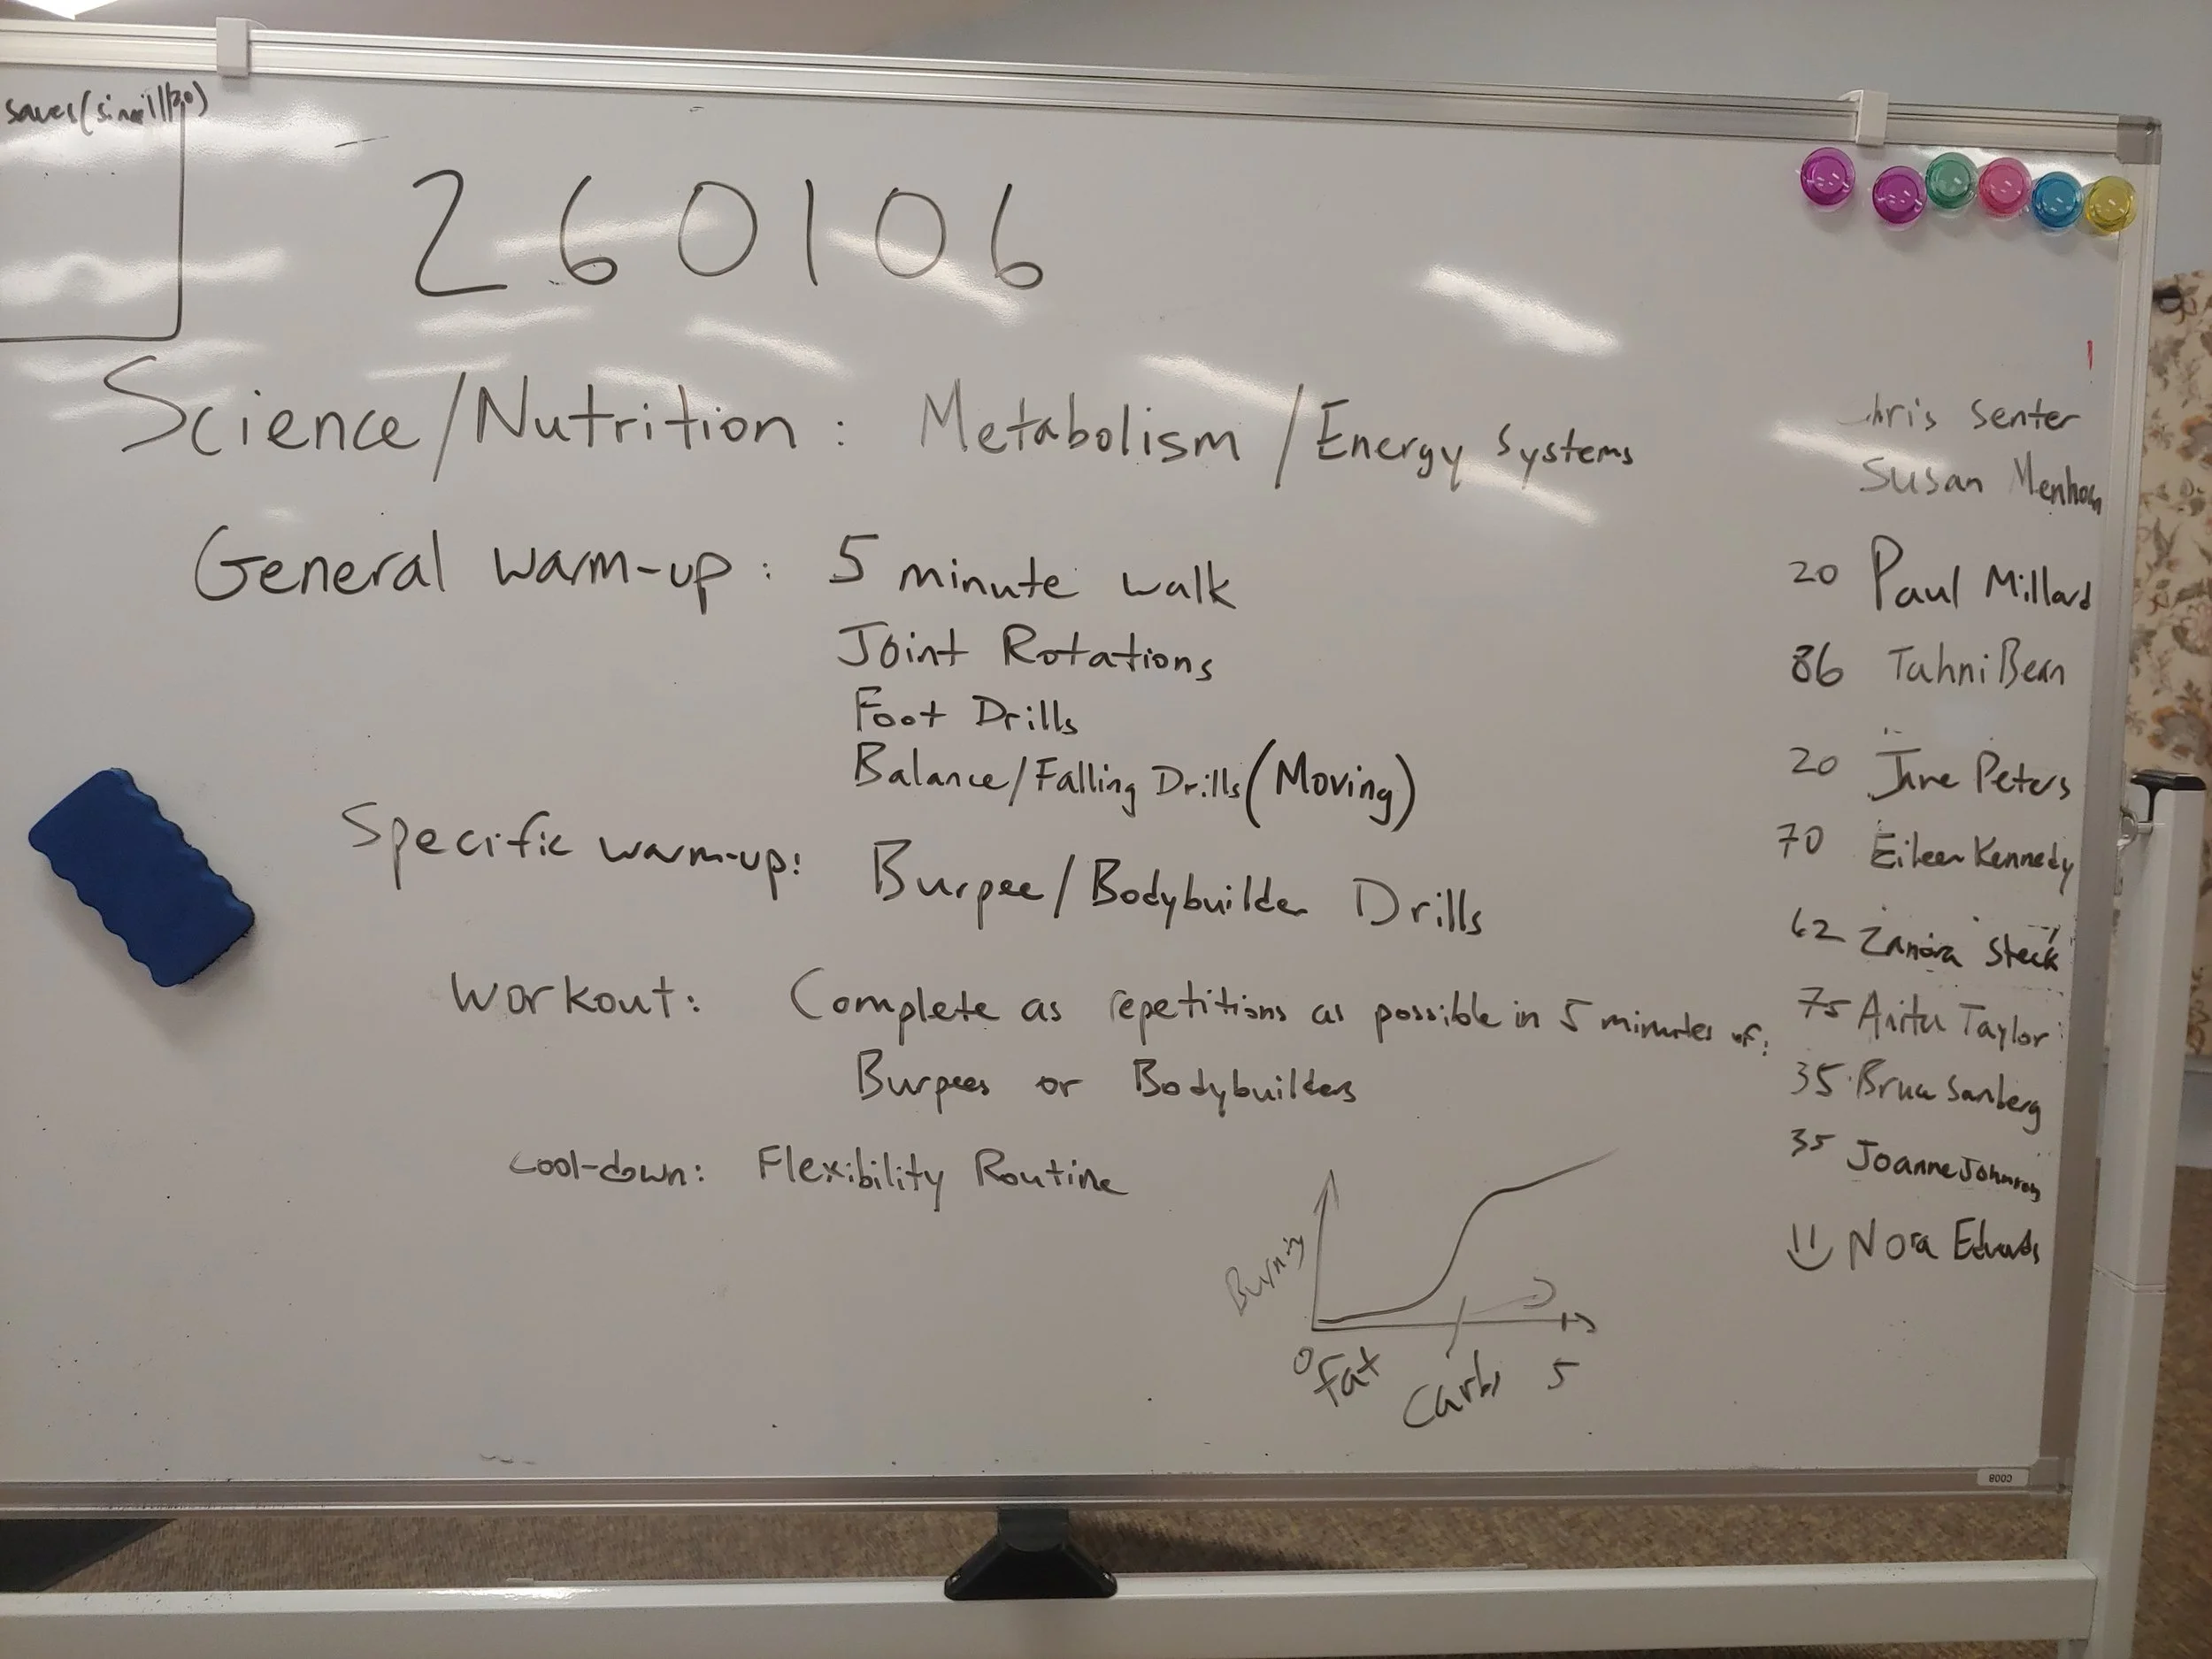 260106
Science/Nutrition: Metabolism/Energy Systems
General warm-up: 5 minute walk
Joint Rotations
Foot Drills
Balance/Falling Drills (Moving)
Specific warm-up: Burpee/Bodybuilder Drills
Workout: Complete as repetitions as possible in 5 minutes of:
Burpees or Bodybuilders
Cool-down: Flexibility Routine
Burning
0 Fat Carbs 5
hris Senter
Susan
20 Paul Millard
86 Tahni Bean
20 Peters
70 Eileen Kennedy
62 Zanora Steck
75 Anita Taylor
35 Bruce Sanberg
35 Joanne Johnson
Nora Edwards
C008